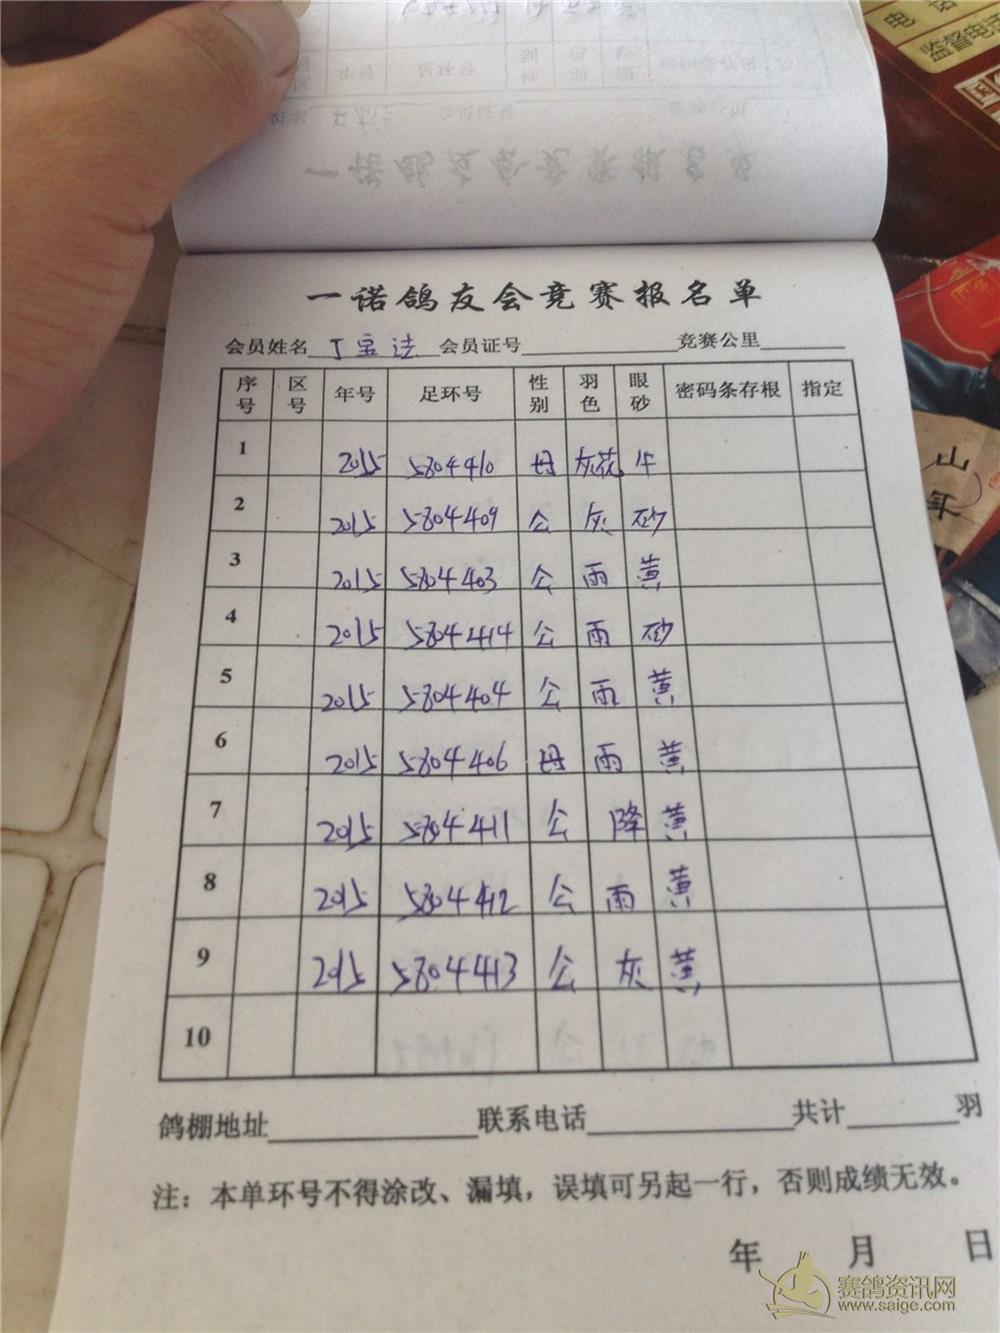 电话
监督电话
国
山
年
一诺鸽友会竞赛报名单
会员姓名 丁宝法 会员证号 竞赛公里
序号 区号 年号 足环号 性别 羽色 眼砂 密码条存根 指定
1 2015 5804410 母 灰花 牛
2 2015 5804409 公 灰 砂
3 2015 5804403 公 雨 黄
4 2015 5804414 公 雨 砂
5 2015 5804404 公 雨 黄
6 2015 5804406 母 雨 黄
7 2015 5804411 公 降 黄
8 2015 5804412 公 雨 黄
9 2015 5804413 公 灰 黄
10
鸽棚地址 联系电话 共计 羽
注：本单环号不得涂改、漏填，误填可另起一行，否则成绩无效。
年 月 日
赛鸽资讯网
www.saige.com